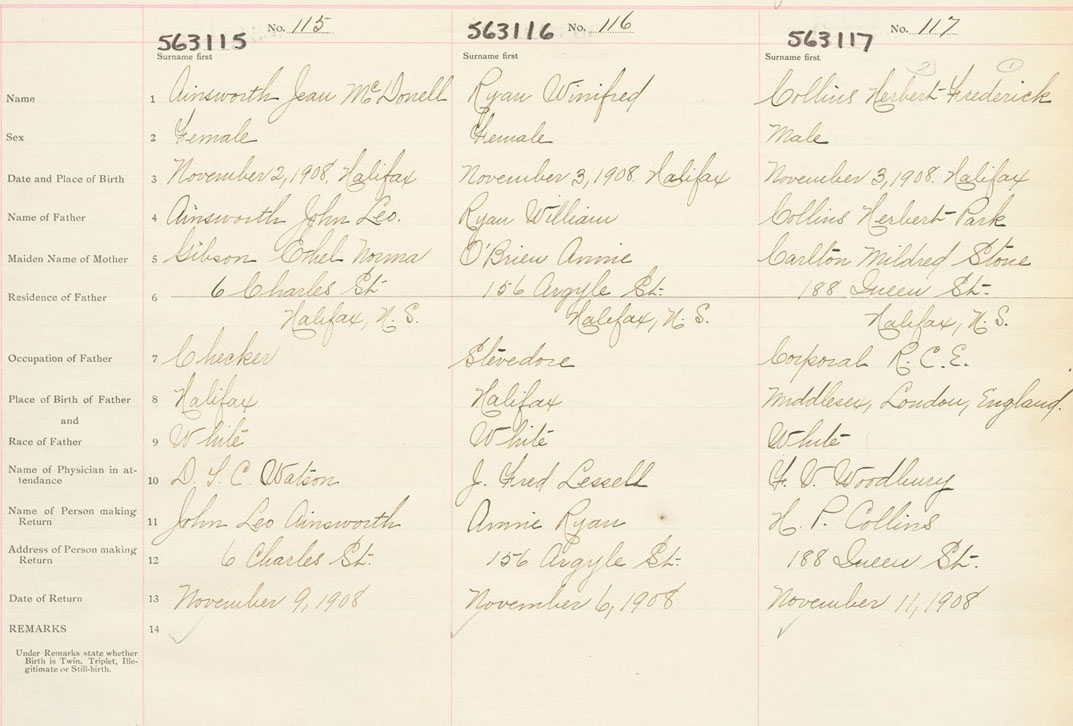 No. 115 No. 116 No. 117
563115 563116 563117
Surname first Surname first Surname first
2 1
Name 1 Ainsworth Jean McDonell Ryan Winifred Collins Herbert Frederick
Sex 2 Female Female Male
Date and Place of Birth 3 November 2, 1908. Halifax November 3, 1908. Halifax November 3, 1908. Halifax
Name of Father 4 Ainsworth John Leo. Ryan William Collins Herbert Park
Maiden Name of Mother 5 Gibson Ethel Norma O'Brien Annie Carlton Mildred Stone
Residence of Father 6 6 Charles St. 156 Argyle St. 188 Queen St.
Halifax, N. S. Halifax, N. S. Halifax, N. S.
Occupation of Father 7 Checker Stevedore Corporal R. C. E.
Place of Birth of Father 8 Halifax Halifax Middlesex, London, England.
and
Race of Father 9 White White White
Name of Physician in at-
tendance 10 D. T. C. Watson J. Fred Lessell F. V. Woodbury
Name of Person making
Return 11 John Leo Ainsworth Annie Ryan H. P. Collins
Address of Person making
Return 12 6 Charles St. 156 Argyle St. 188 Queen St.
Date of Return 13 November 9, 1908 November 6, 1908 November 11, 1908
REMARKS 14
Under Remarks state whether
Birth is Twin, Triplet, Ille-
gitimate or Still-birth.